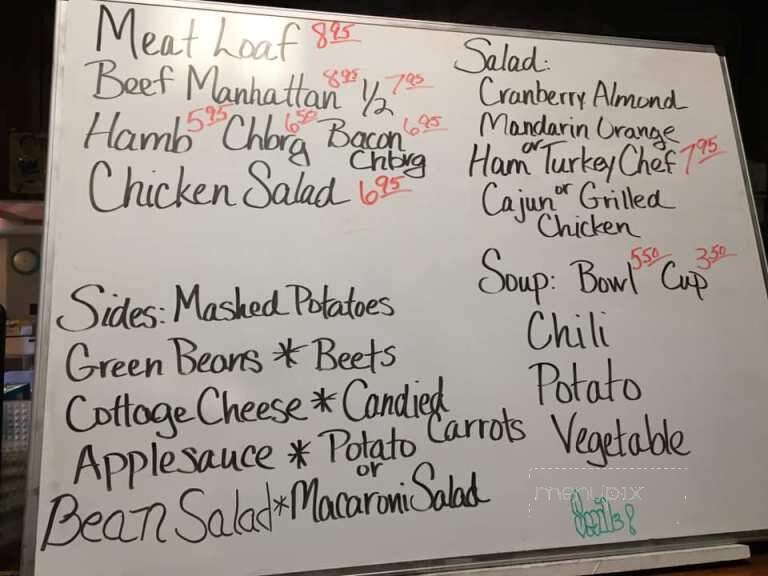 Meat Loaf 8.95
Beef Manhattan 8.95 1/2 7.95
Hamb 5.95 Chbrg 6.50 Bacon Chbrg 6.95
Chicken Salad 6.95
Sides: Mashed Potatoes
Green Beans * Beets
Cottage Cheese * Candied Carrots
Applesauce * Potato
or
Bean Salad * Macaroni Salad
Salad:
Cranberry Almond
Mandarin Orange
Ham or Turkey Chef 7.95
Cajun or Grilled
Chicken
Soup: Bowl 5.50 Cup 3.50
Chili
Potato
Vegetable
menupix